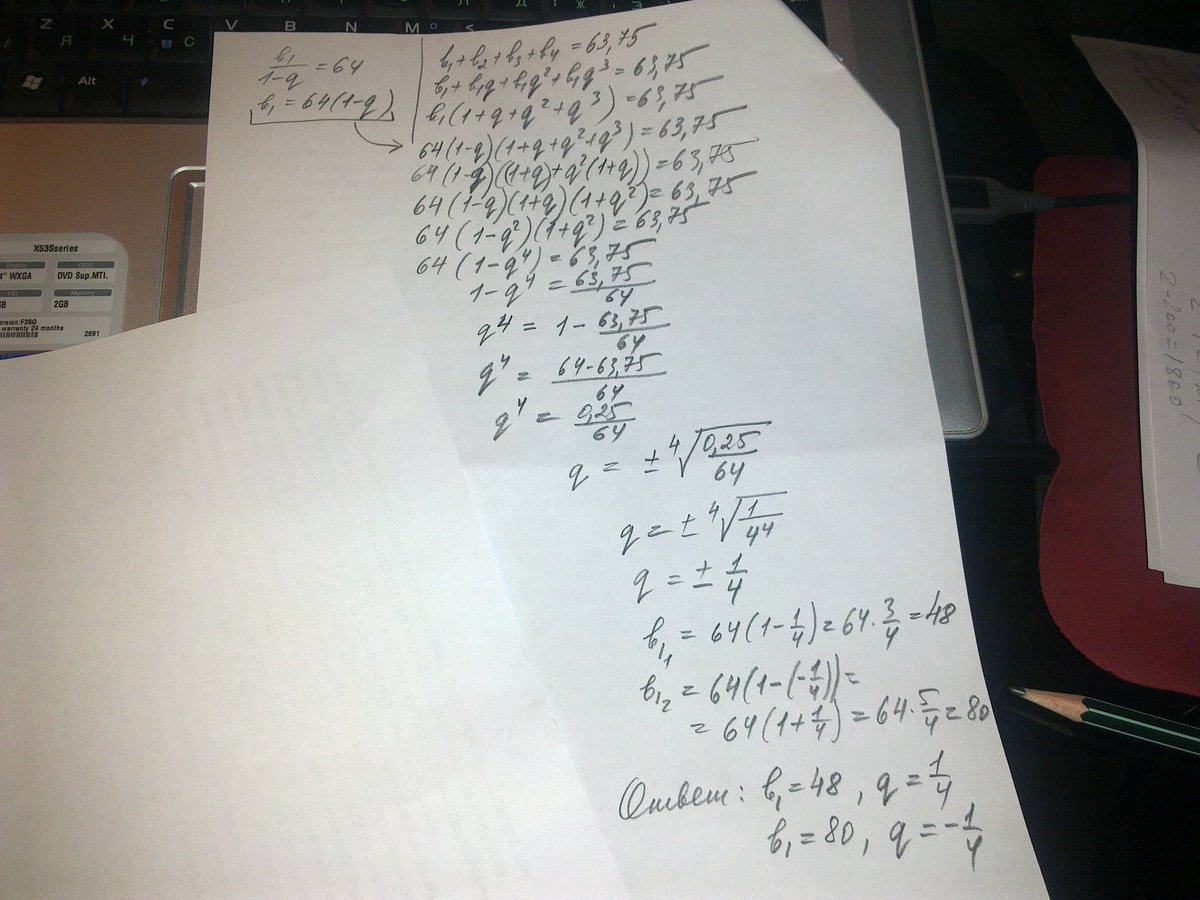 Z X C V B N M <
Я Ч С И
Alt
X53Sseries
4" WXGA
DVD Sup.MTI.
Memory
GB
2GB
ersion:F3SG
warranty 24 months
2691
b₁/(1-q) = 64
b₁ = 64(1-q)
b₁+b₂+b₃+b₄ = 63,75
b₁+b₁q+b₁q²+b₁q³ = 63,75
b₁(1+q+q²+q³) = 63,75
64(1-q)(1+q+q²+q³) = 63,75
64(1-q)((1+q)+q²(1+q)) = 63,75
64(1-q)(1+q)(1+q²) = 63,75
64(1-q²)(1+q²) = 63,75
64(1-q⁴) = 63,75
1-q⁴ = 63,75/64
q⁴ = 1 - 63,75/64
q⁴ = (64-63,75)/64
q⁴ = 0,25/64
q = ± ⁴√(0,25/64)
q = ± ⁴√(1/4⁴)
q = ± 1/4
b₁₁ = 64(1-1/4) = 64·3/4 = 48
b₁₂ = 64(1-(-1/4)) =
= 64(1+1/4) = 64·5/4 = 80
Ответ: b₁ = 48, q = 1/4
b₁ = 80, q = -1/4
2·900=1800